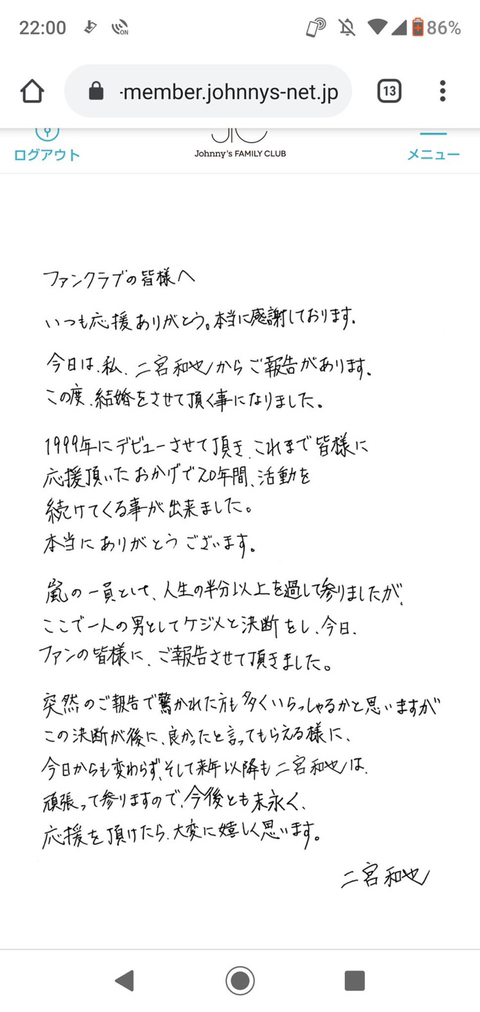 22:00
86%
-member.johnnys-net.jp
13
ログアウト
Johnny's FAMILY CLUB
メニュー
ファンクラブの皆様へ
いつも応援ありがとう。本当に感謝しております。
今日は、私、二宮和也からご報告があります。
この度、結婚をさせて頂く事になりました。
1999年にデビューさせて頂き、これまで皆様に
応援頂いたおかげで20年間、活動を
続けてくる事が出来ました。
本当にありがとうございます。
嵐の一員として、人生の半分以上を過して参りましたが、
ここで一人の男としてケジメと決断をし、今日、
ファンの皆様に、ご報告させて頂きました。
突然のご報告で驚かれた方も多くいらっしゃるかと思いますが
この決断が後に、良かったと言ってもらえる様に、
今日からも変わらず、そして来年以降も二宮和也は、
頑張って参りますので、今後とも末永く、
応援を頂けたら、大変に嬉しく思います。
二宮和也